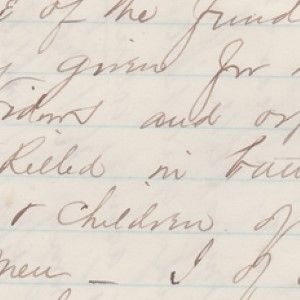 of the fund
given for
Widows and or
Killed in batt
& children of
men — I of